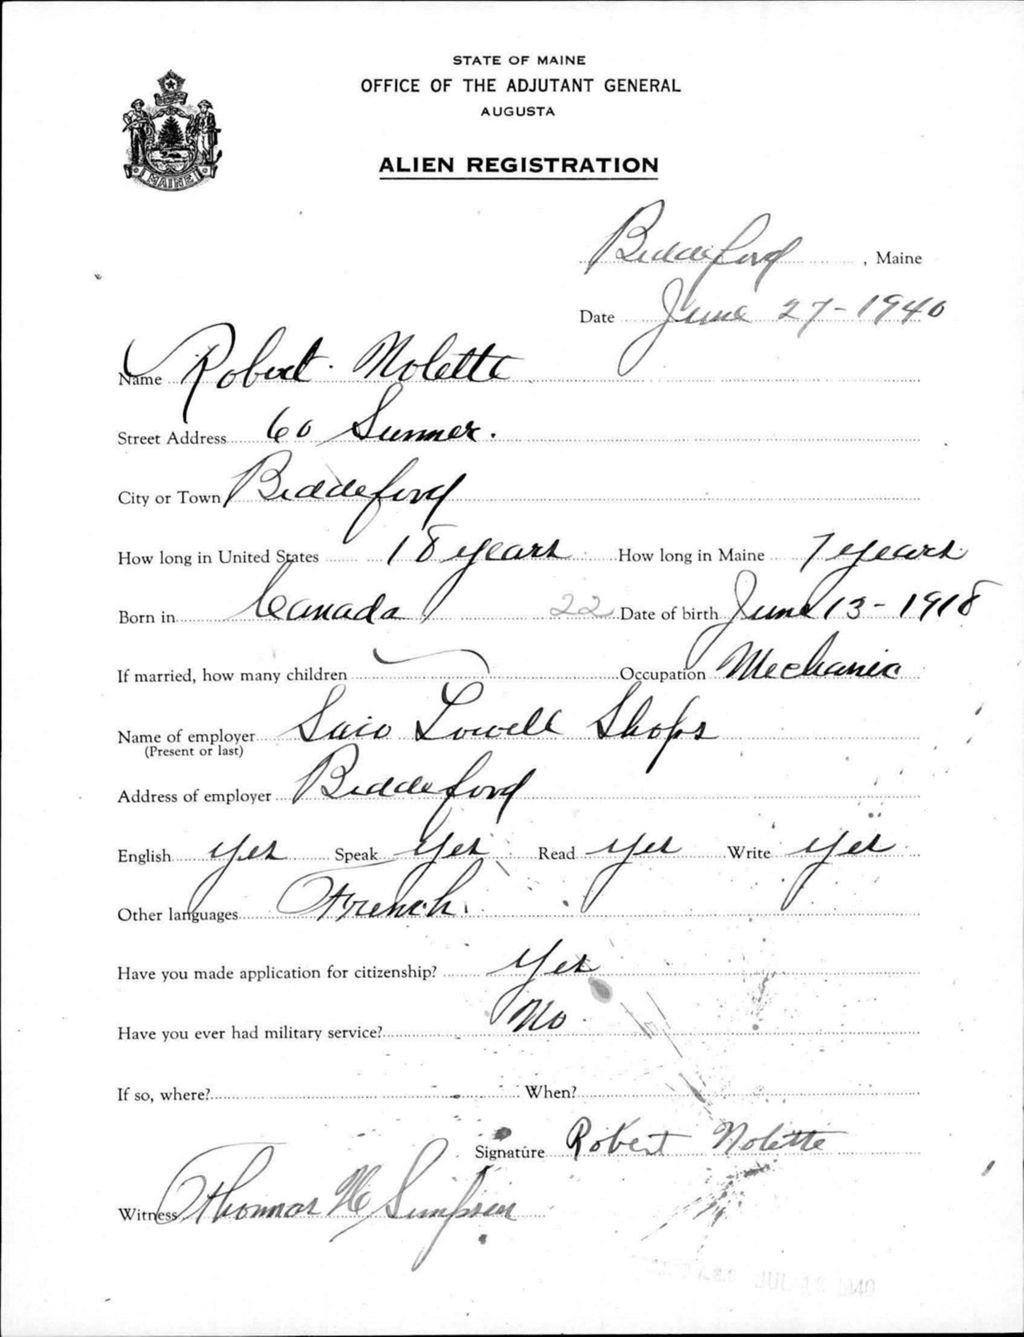 STATE OF MAINE
OFFICE OF THE ADJUTANT GENERAL
AUGUSTA
MAINE
ALIEN REGISTRATION
Biddeford, Maine
Date June 27-1940
Name Robert Nolette
Street Address 60 Sumner.
City or Town Biddeford
How long in United States 18 years How long in Maine 7 years
Born in Canada 22 Date of birth June 13-1918
If married, how many children Occupation Mechanic
Name of employer Saco Lowell Shops
(Present or last)
Address of employer Biddeford
English yes Speak yes Read yes Write yes
Other languages French.
Have you made application for citizenship? Yes
Have you ever had military service? No
If so, where? When?
Signature Robert Nolette
Witness Thomas H Simpson
JUL 1940